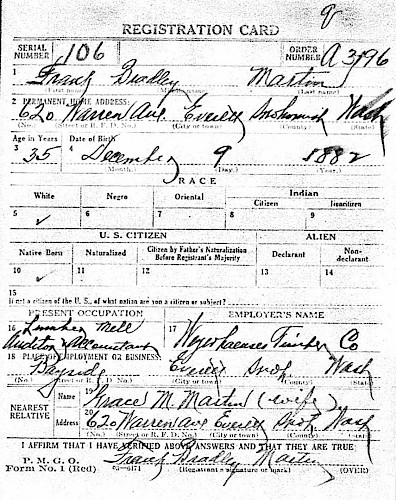 REGISTRATION CARD
SERIAL NUMBER 106 ORDER NUMBER A 3196
1 Frank Bradley Martin
(First name) (Middle name) (Last name)
2 PERMANENT HOME ADDRESS:
620 Warren Ave Everett Snohomish Wash
(No.) (Street or R. F. D. No.) (City or town) (County) (State)
Age in Years Date of Birth
3 35 4 December 9 1882
(Month.) (Day.) (Year.)
RACE
White Negro Oriental Indian
Citizen Noncitizen
5 ✓ 6 7 8 9
U. S. CITIZEN ALIEN
Native Born Naturalized Citizen by Father's Naturalization Before Registrant's Majority Declarant Non-declarant
10 ✓ 11 12 13 14
15
If not a citizen of the U. S., of what nation are you a citizen or subject?
PRESENT OCCUPATION EMPLOYER'S NAME
16 Lumber Mill 17 Weyerhaeuser Timber Co
Auditor & Accountant
18 PLACE OF EMPLOYMENT OR BUSINESS:
Bayside Everett Snoh Wash
(No.) (Street or R. F. D. No.) (City or town) (County) (State)
NEAREST RELATIVE
Name 19 Grace M. Martin (wife)
Address 20 620 Warren Ave Everett Snoh Wash
(No.) (Street or R. F. D. No.) (City or town) (County) (State)
I AFFIRM THAT I HAVE VERIFIED ABOVE ANSWERS AND THAT THEY ARE TRUE
P. M. G. O.
Form No. 1 (Red) Frank Bradley Martin
(Registrant's signature or mark) (OVER)